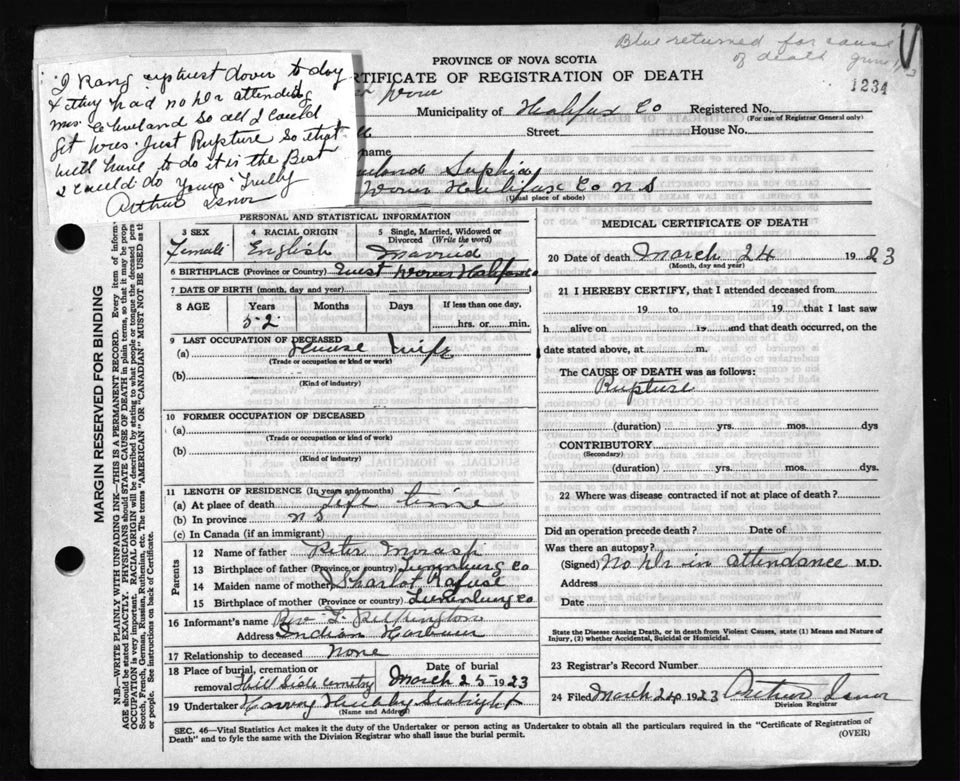 Blue returned for cause
of death June
1234
I Rang uptuest dover to day
& they had no Dr attending
Mrs. so all I could
Get was. Just Rupture so that
will have to do it is the Best
I Could do Yours Trully
Arthur Isnor
PROVINCE OF NOVA SCOTIA
RTIFICATE OF REGISTRATION OF DEATH
Municipality of Halifax Co Registered No.
(For use of Registrar General only)
Street House No.
name
Sophia
Halifax Co N S
(Usual place of abode)
MARGIN RESERVED FOR BINDING
N.B.—WRITE PLAINLY WITH UNFADING INK—THIS IS A PERMANENT RECORD. Every item of inform
AGE should be stated EXACTLY. PHYSICIANS should STATE CAUSE OF DEATH in plain terms, so that it may be prop
OCCUPATION is very important. RACIAL ORIGIN will be described by stating to what people or tongue the deceased pers
Scotch, French, German, Russian, Ruthenian, etc. The terms "AMERICAN" OR "CANADIAN" MUST NOT BE USED as th
or people. See instructions on back of Certificate.
PERSONAL AND STATISTICAL INFORMATION
3 SEX 4 RACIAL ORIGIN 5 Single, Married, Widowed or
Divorced (Write the word)
Female English Married
6 BIRTHPLACE (Province or Country) Dover Halifax
7 DATE OF BIRTH (month, day and year)
8 AGE Years Months Days If less than one day,
52 hrs. or min.
9 LAST OCCUPATION OF DECEASED
(a) House wife
(Trade or occupation or kind or work)
(b)
(Kind of industry)
10 FORMER OCCUPATION OF DECEASED
(a)
(Trade or occupation or kind of work)
(b)
(Kind of industry)
11 LENGTH OF RESIDENCE (In years and months)
(a) At place of death Life time
(b) In province N S
(c) In Canada (if an immigrant)
Parents
12 Name of father Peter Morash
13 Birthplace of father (Province or country) Lunenburg Co
14 Maiden name of mother Sharlot Rafuse
15 Birthplace of mother (Province or country) Lunenburg Co
16 Informant's name Rev
Address Indian Harbour
17 Relationship to deceased None
18 Place of burial, cremation or
removal Hill Side Cemetry
Date of burial
March 25 1923
19 Undertaker
(Name and Address)
MEDICAL CERTIFICATE OF DEATH
20 Date of death March 24 1923
(Month, day and year)
21 I HEREBY CERTIFY, that I attended deceased from
19 to 19 that I last saw
h alive on 19 and that death occurred, on the
date stated above, at m.
The CAUSE OF DEATH was as follows:
Rupture
(duration) yrs. mos. dys
CONTRIBUTORY
(Secondary)
(duration) yrs. mos. dys.
22 Where was disease contracted if not at place of death?
Did an operation precede death? Date of
Was there an autopsy?
(Signed) No Dr in attendance M.D.
Address
Date
State the Disease causing Death, or in death from Violent Causes, state (1) Means and Nature of
Injury, (2) whether Accidental, Suicidal or Homicidal.
23 Registrar's Record Number
24 Filed March 24 1923 Arthur Isnor
Division Registrar
SEC. 46—Vital Statistics Act makes it the duty of the Undertaker or person acting as Undertaker to obtain all the particulars required in the "Certificate of Registration of
Death" and to fyle the same with the Division Registrar who shall issue the burial permit.
(OVER)